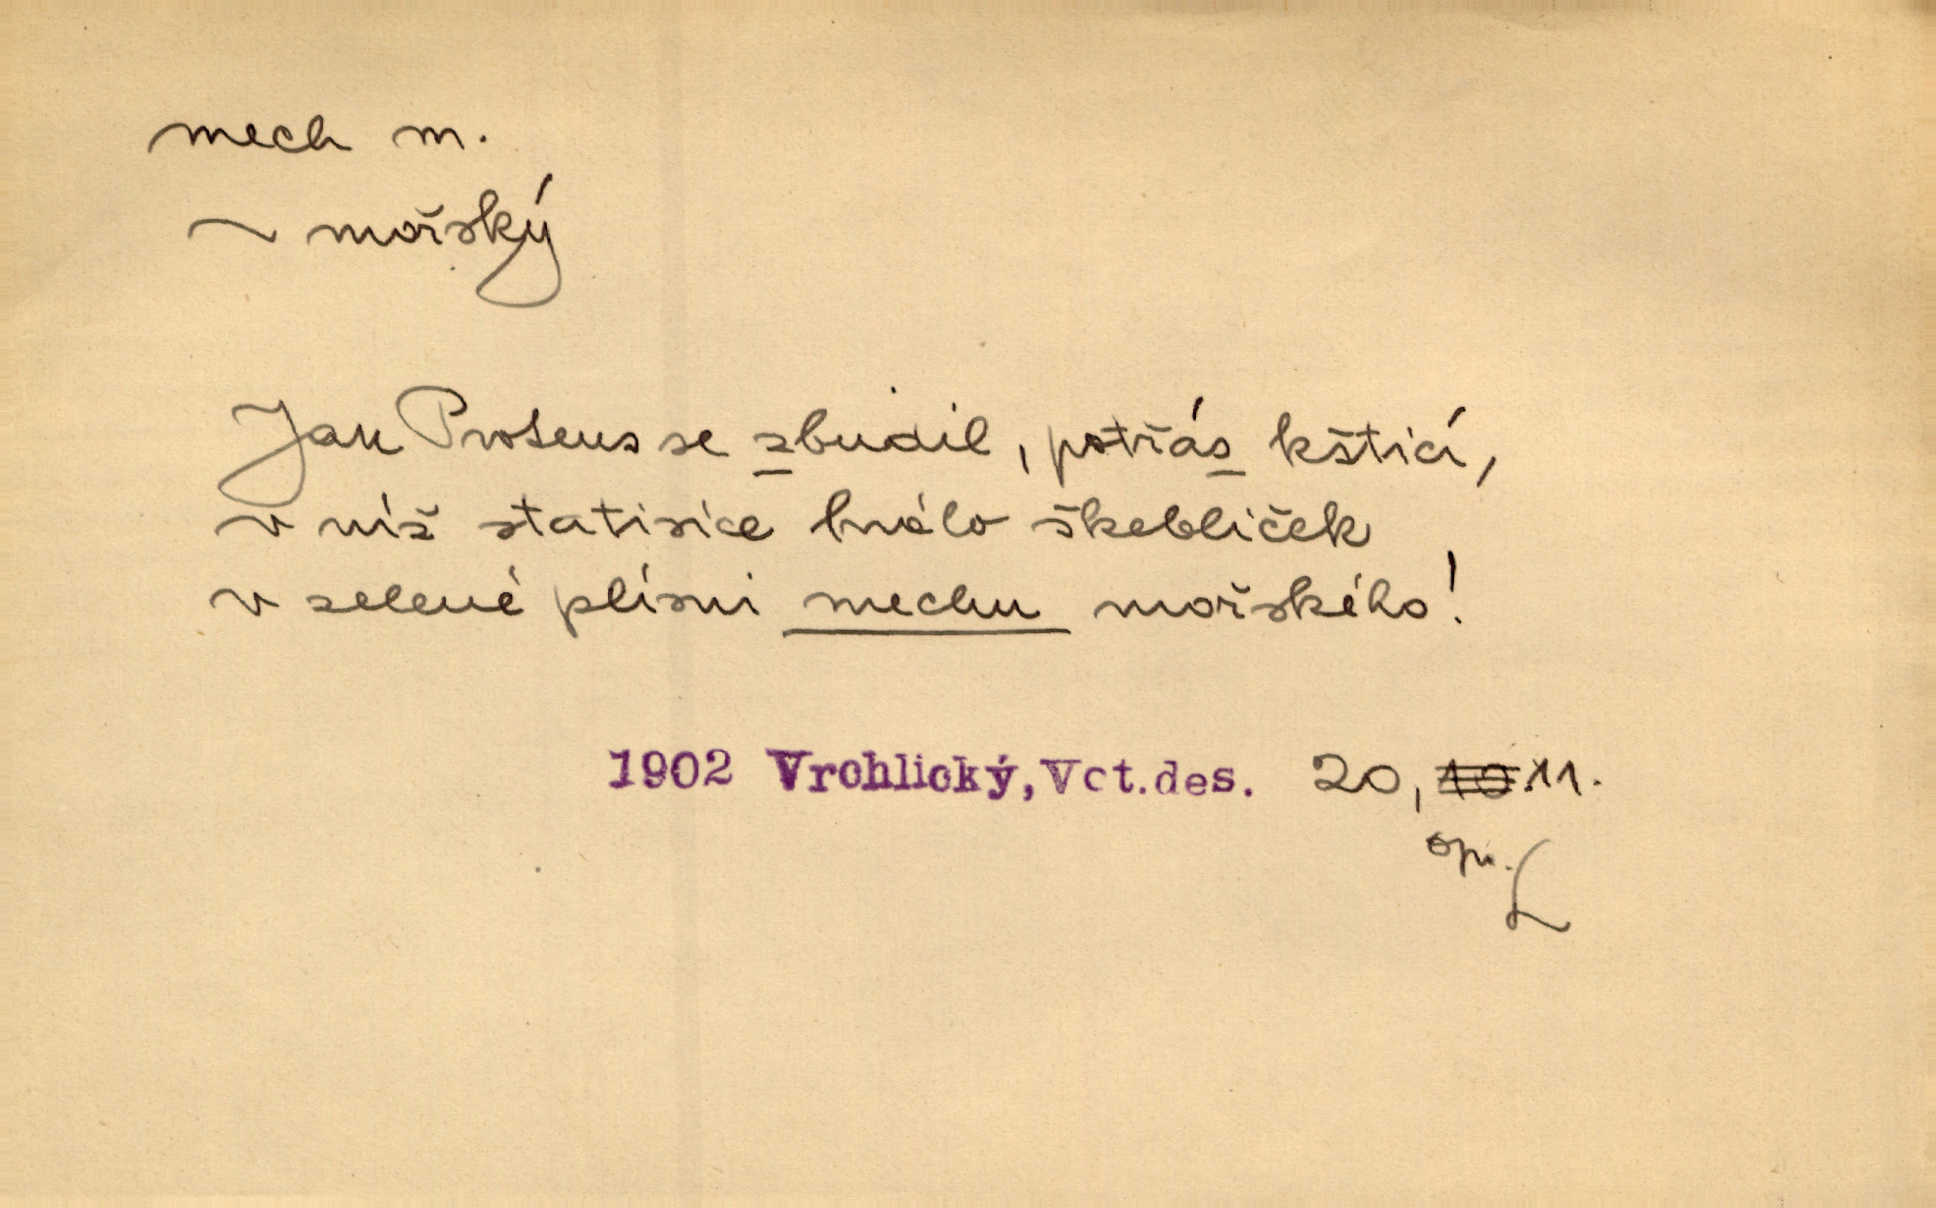 mech m.
~ mořský
Jak Proteus se zbudil, potřás kšticí,
v níž statisíce lnulo škebliček
v zelené plísni mechu mořského!
1902 Vrchlický, Vct.des. 20, 11.
opr. L